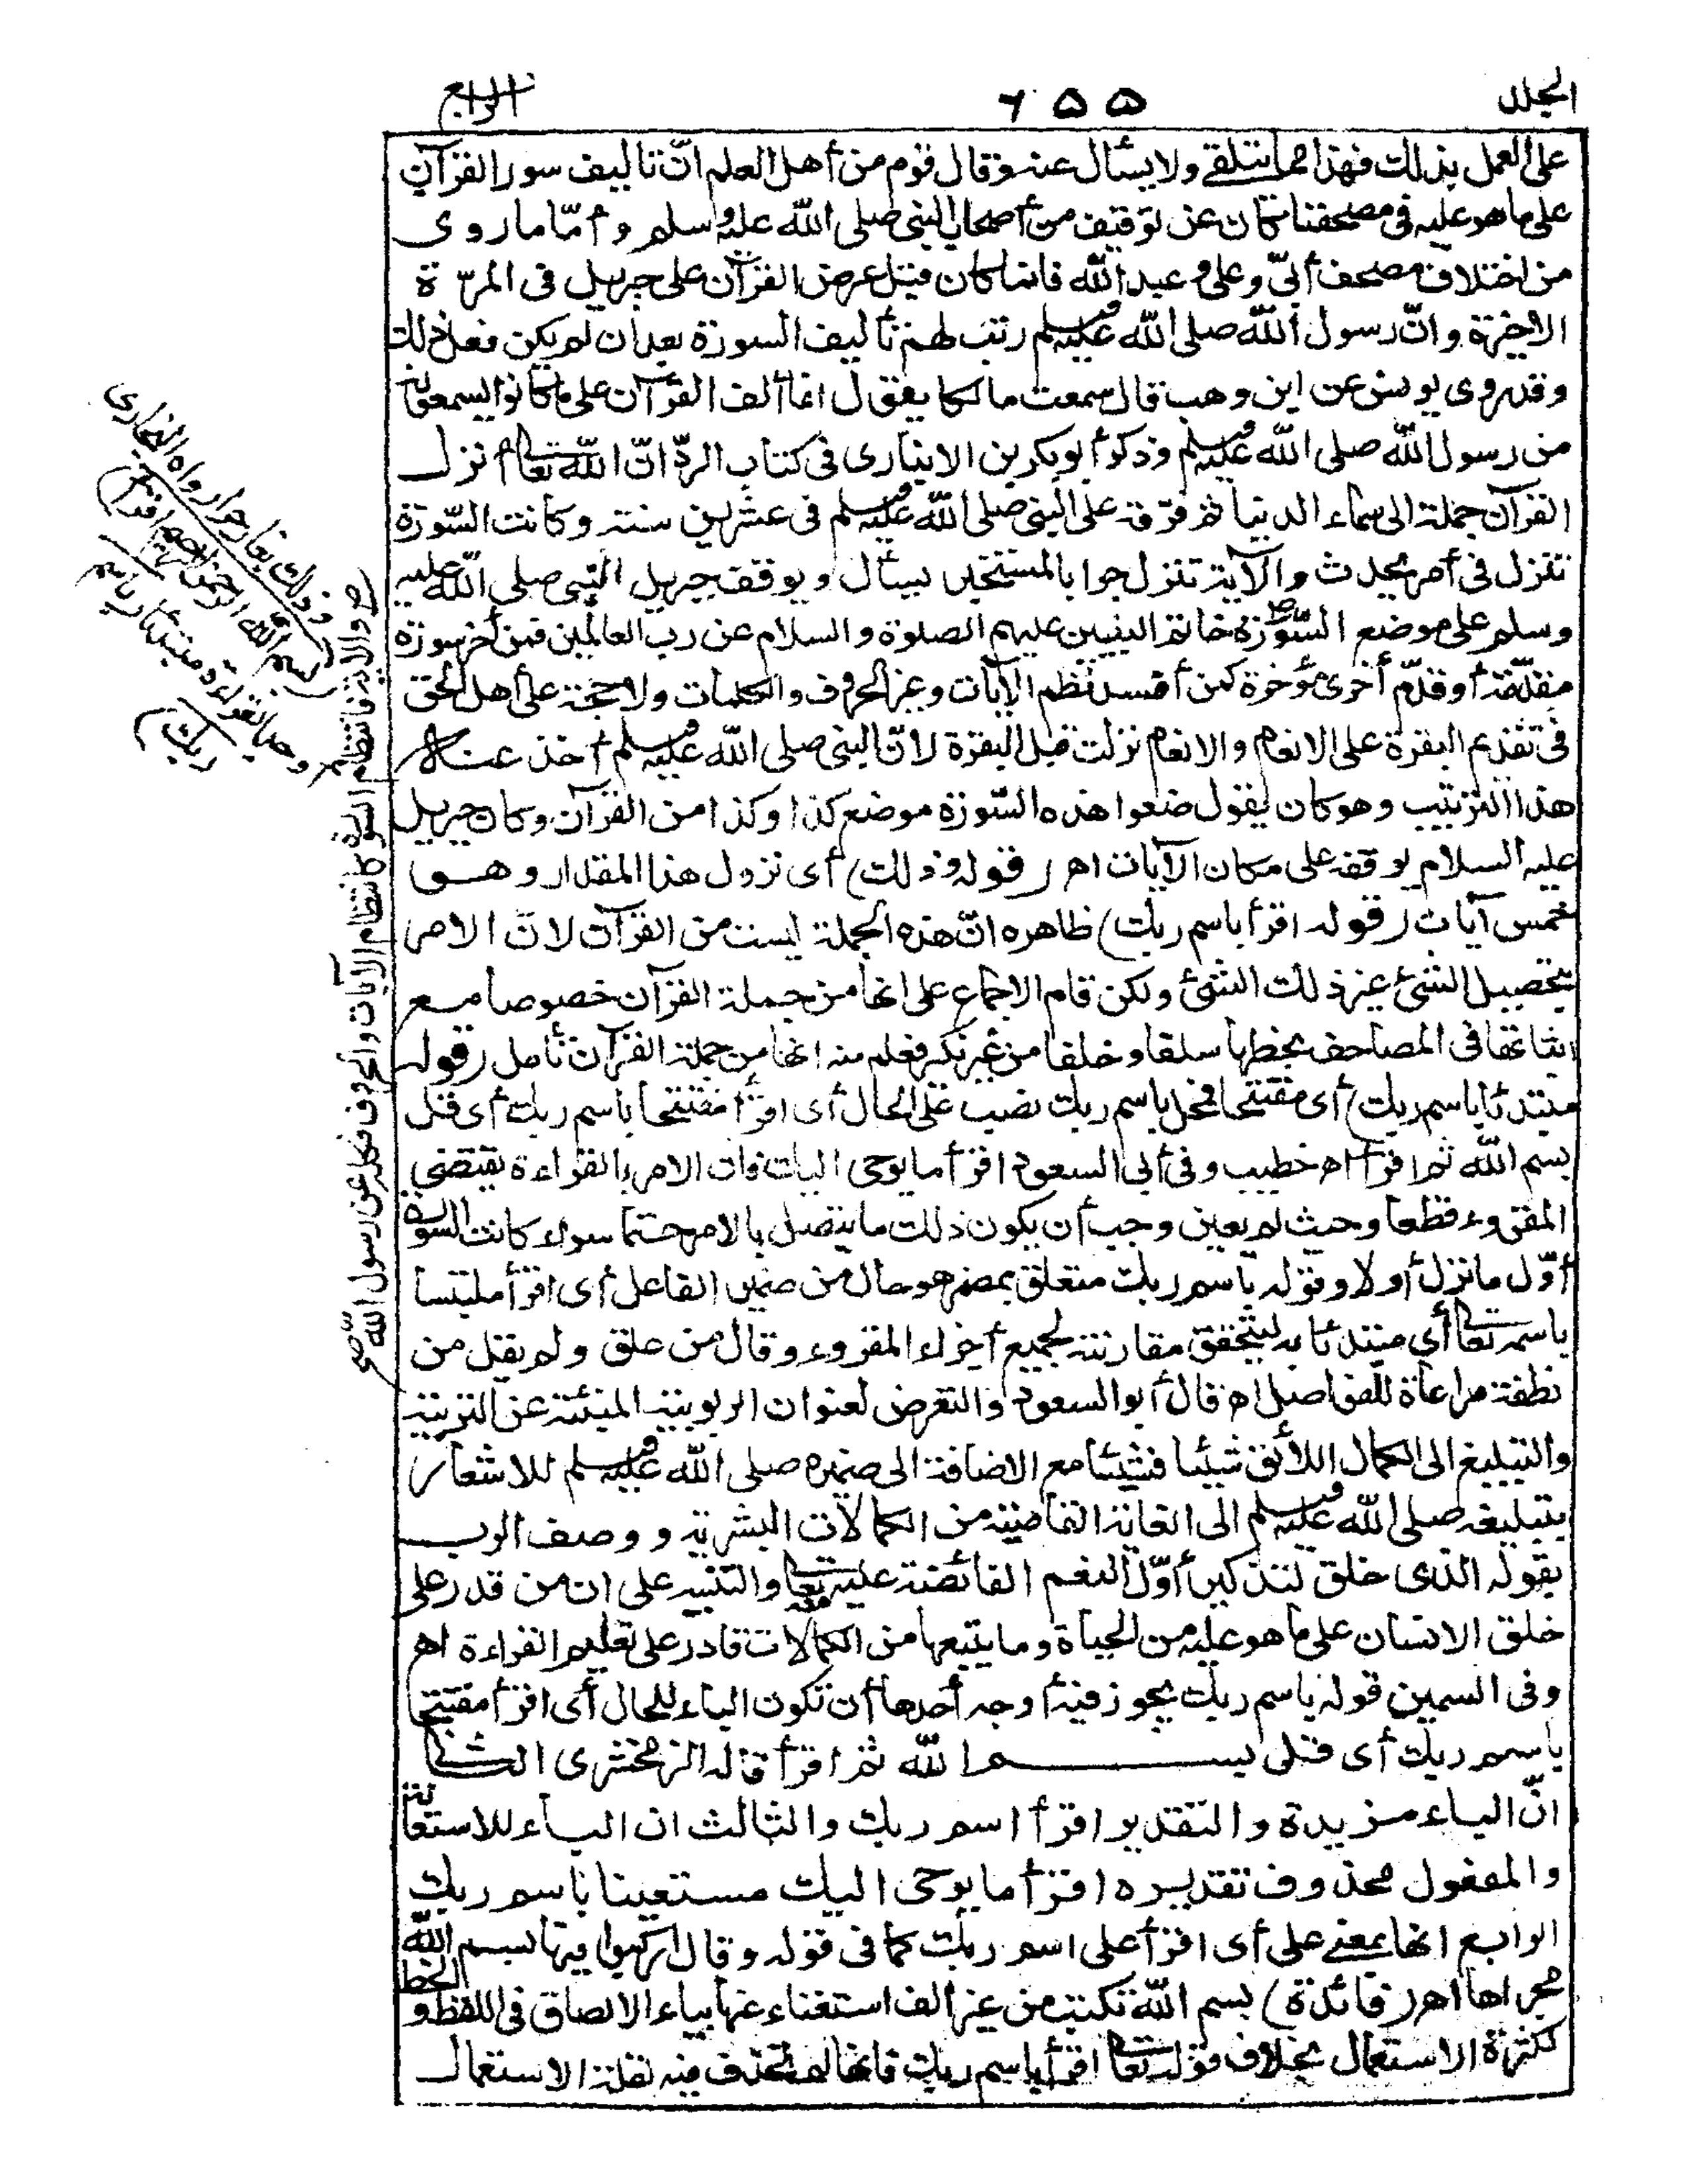 المجلد
٦٥٥
الرابع
على العمل بذلك فهذا مما يتلقى ولا يسأل عنه وقال قوم من أهل العلم انّ تأليف سور القرآن
على ما هو عليه فى مصحفنا كان عن توقيف من أصحاب النبى صلى الله عليه وسلم وأمّا ما روى
من اختلاف مصحف أبىّ وعلى وعبد الله فانما كان قبل عرض القرآن على جبريل فى المرّة
الاخيرة وانّ رسول الله صلى الله عليه وسلم رتب لهم تأليف السورة بعد ان لم يكن فعل ذلك
وقد روى يونس عن ابن وهب قال سمعت مالكا يقول انما ألف القرآن على ما كانوا يسمعونه
من رسول الله صلى الله عليه وسلم وذكر أبو بكر بن الانبارى فى كتاب الردّ انّ الله تعالى أنزل
القرآن جملة الى سماء الدنيا ثم فرّقه على النبى صلى الله عليه وسلم فى عشرين سنة وكانت السّورة
تنزل فى أمر يحدث والآية تنزل جوابا لمستخبر يسأل ويوقف جبريل النبى صلى الله عليه
وسلم على موضع السّورة خاتم النبيين عليهم الصلوة والسلام عن رب العالمين فمن أخر سورة
مقدّمة أو قدّم أخرى مؤخرة كمن أفسد نظم الآيات وغير الحروف والكلمات ولا حجة على أهل الحق
فى تقديم البقرة على الانعام والانعام نزلت قبل البقرة لانّ النبى صلى الله عليه وسلم أخذ عنه
هذا الترتيب وهو كان يقول ضعوا هذه السّورة موضع كذا وكذا من القرآن وكان جبريل
عليه السلام يوقفه على مكان الآيات اهـ (قوله وذلك) أى نزول هذا المقدار وهو
خمس آيات (قوله اقرأ باسم ربك) ظاهره انّ هذه الجملة ليست من القرآن لانّ الامر
بتحصيل الشئ غير ذلك الشئ ولكن قام الاجماع على انها من جملة القرآن خصوصا مع
اثباتها فى المصاحف بخطها سلفا وخلفا من غير نكير فعلم منه انها من جملة القرآن تأمل (قوله
مبتدئا باسم ربك) أى مفتتحا فمحل باسم ربك نصب على الحال أى اقرأ مفتتحا باسم ربك أى قل
بسم الله ثم اقرأ اهـ خطيب وفى أبى السعود اقرأ ما يوحى اليك فان الامر بالقراءة يقتضى
المقروء قطعا وحيث لم يعين وجب أن يكون ذلك ما يتصل بالامر حتما سواء كانت السورة
أوّل ما نزل أو لا وقوله باسم ربك متعلق بمضمر هو حال من ضمير الفاعل أى اقرأ ملتبسا
باسمه تعالى أى مبتدئا به لتتحقق مقارنته لجميع أجزاء المقروء وقال من علق ولم يقل من
نطفة مراعاة للفواصل اهـ قال أبو السعود والتعرض لعنوان الربوبية المنبئة عن التربية
والتبليغ الى الكمال اللائق شيئا فشيئا مع الاضافة الى ضميره صلى الله عليه وسلم للاشعار
بتبليغه صلى الله عليه وسلم الى الغاية القاصية من الكمالات البشرية ووصف الرب
بقوله الذى خلق لتذكير أوّل النعم الفائضة عليه منه تعالى والتنبيه على ان من قدر على
خلق الانسان على ما هو عليه من الحياة وما يتبعها من الكمالات قادر على تعليم القراءة اهـ
وفى السمين قوله باسم ربك يجوز فيه أوجه أحدها أن تكون الباء للحال أى اقرأ مفتتحا
باسم ربك أى قل بسم الله ثم اقرأ قاله الزمخشرى الثانى
انّ الباء مزيدة والتقدير اقرأ اسم ربك والثالث ان الباء للاستعانة
والمفعول محذوف تقديره اقرأ ما يوحى اليك مستعينا باسم ربك
الرابع انها بمعنى على أى اقرأ على اسم ربك كما فى قوله وقال اركبوا فيها بسم الله
مجراها اهـ (فائدة) بسم الله تكتب من غير ألف استغناء عنها بباء الالصاق فى اللفظ والخط
لكثرة الاستعمال بخلاف قوله تعالى اقرأ باسم ربك فانها لم تحذف فيه لقلة الاستعمال
والآية فانتظام السورة كانتظام الآيات والحروف فكله عن رسول الله
وذلك بغار حرا رواه البخارى
(بسم الله الرحمن الرحيم اقرأ)
وجد القراءة مبتدئا (باسم
ربك)